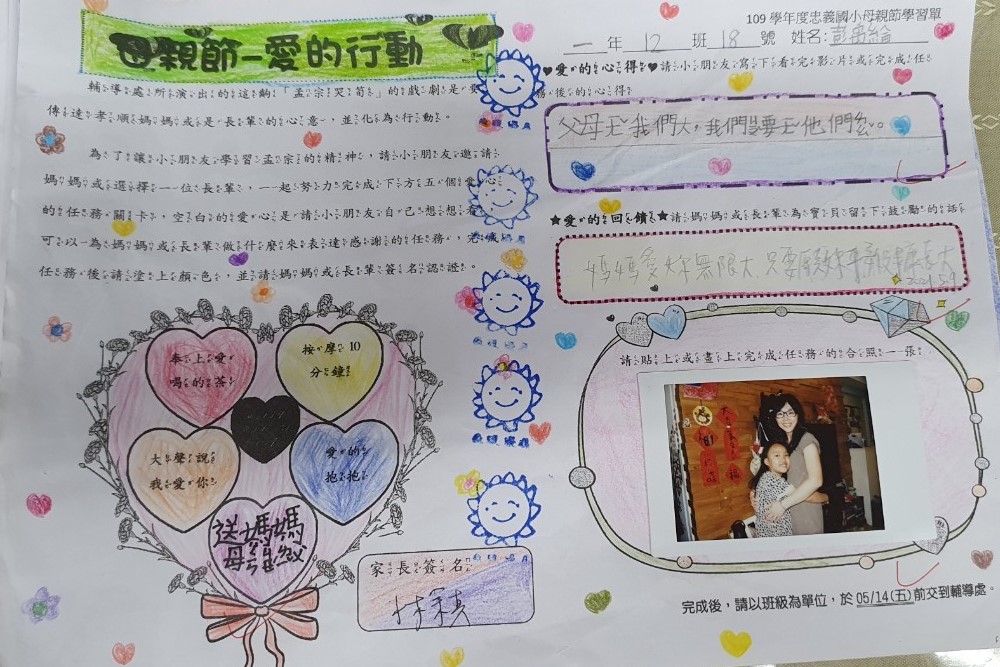 109 學年度忠義國小母親節學習單
母親節–愛的行動
一年 12 班 18 號 姓名:
輔導處所演出的這齣「孟宗哭筍」的戲劇是要
傳達孝順媽媽或是長輩的心意,並化為行動。
為了讓小朋友學習孟宗的精神,請小朋友邀請
媽媽或選擇一位長輩,一起努力完成下方五個愛心
的任務關卡,空白的愛心是請小朋友自己想想看
可以為媽媽或長輩做什麼來表達感謝的任務,完成
任務後請塗上顏色,並請媽媽或長輩簽名認證。
♥愛的心得♥請小朋友寫下看完影片或完成任
務後的心得
父母主我們大,我們要主他們
★愛的回饋★請媽媽或長輩為寶貝留下鼓勵的話
媽媽愛妳無限大,只要
2021.5.9
請貼上或畫上完成任務的合照一張
奉上愛
喝的茶
按摩 10
分鐘
大聲說
我愛你
愛的
抱抱
送媽媽
母
家長簽名
完成後,請以班級為單位,於 05/14(五)前交到輔導處。